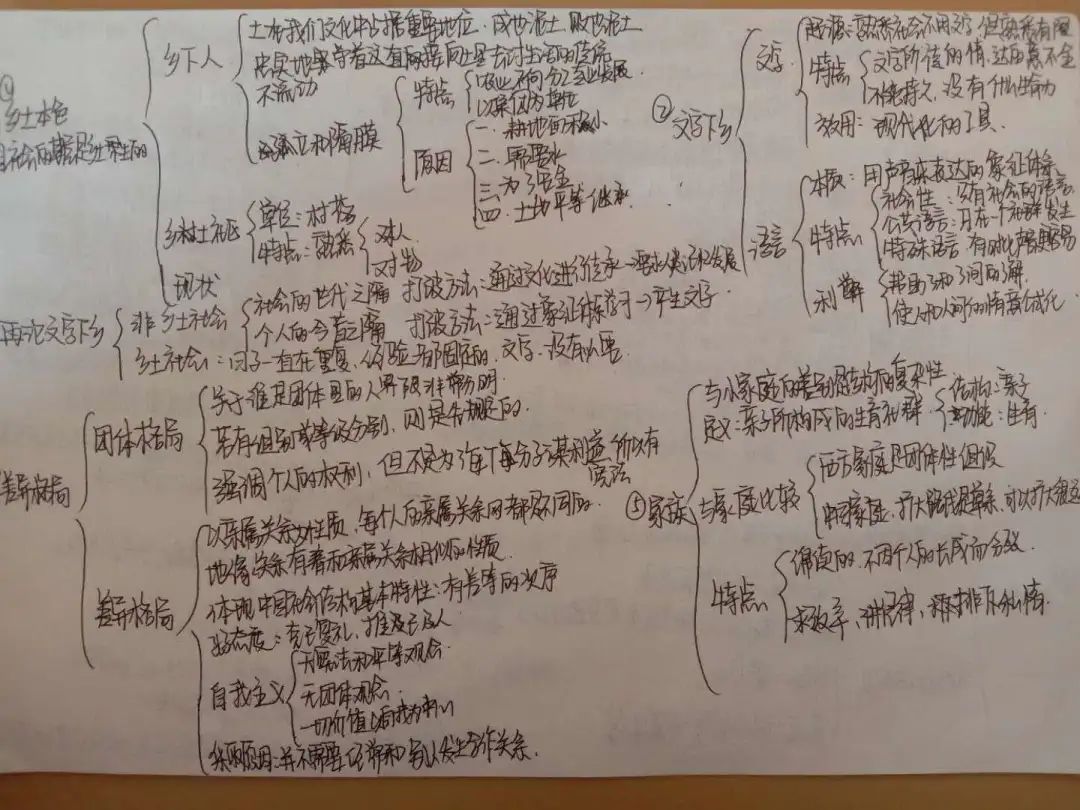 ① 乡土本色
乡下人
土在我们文化中占据重要地位，成也泥土，败也泥土
忠实地守着这直接向土里去讨生活的传统
不流动
孤立和隔膜
特点
以家位为单位
原因
一、耕地面积小
二、需要水
三、为了安全
四、土地平等继承
乡村社区
单位：村落
特点：熟悉
对人
对物
现状
② 文字下乡
文字
起源：熟悉社会不用文字
特点
文字所传的情、达的意不全
不能持久，没有什么生命力
效用：现代化的工具.
语言
本质：用声音来表达的象征体系
特点
社会性：只有社会的语言
公共语言：
特殊语言：
利弊
再论文字下乡
非乡土社会
社会的世代之隔 打破方法：通过文化进行传承
个人的今昔之隔 打破方法：通过象征体系
乡土社会：日子一直在重复，经验都固定的，文字没有必要
差异格局
团体格局
关于谁是团体里的人界限非常分明.
若有组别或等级分别，则是先规定的.
强调个人的权利，但不是为了每个分子谋利益，所以有宪法
差异格局
以亲属关系为性质，每个人的亲属关系网都是不同的.
地缘关系有着和亲属关系相似的性质
体现中国社会结构基本特性：有差等的次序
态度：克己复礼，推及己人
自我主义
无宪法和平等观念.
无团体观念.
一切价值以自我为中心
原因：并不需要经常和多人发生合作关系.
⑤ 家族
与小家庭的差别是结构的复杂性
定义：亲子所构成的生育社群
结构：亲子
功能：生育
与家庭比较
西方家庭是团体性组织
中国家庭：扩大路线是单系，可以扩大很远
特点
绵续的，不因个人的长成而分裂
求效率，讲纪律，排斥私情.